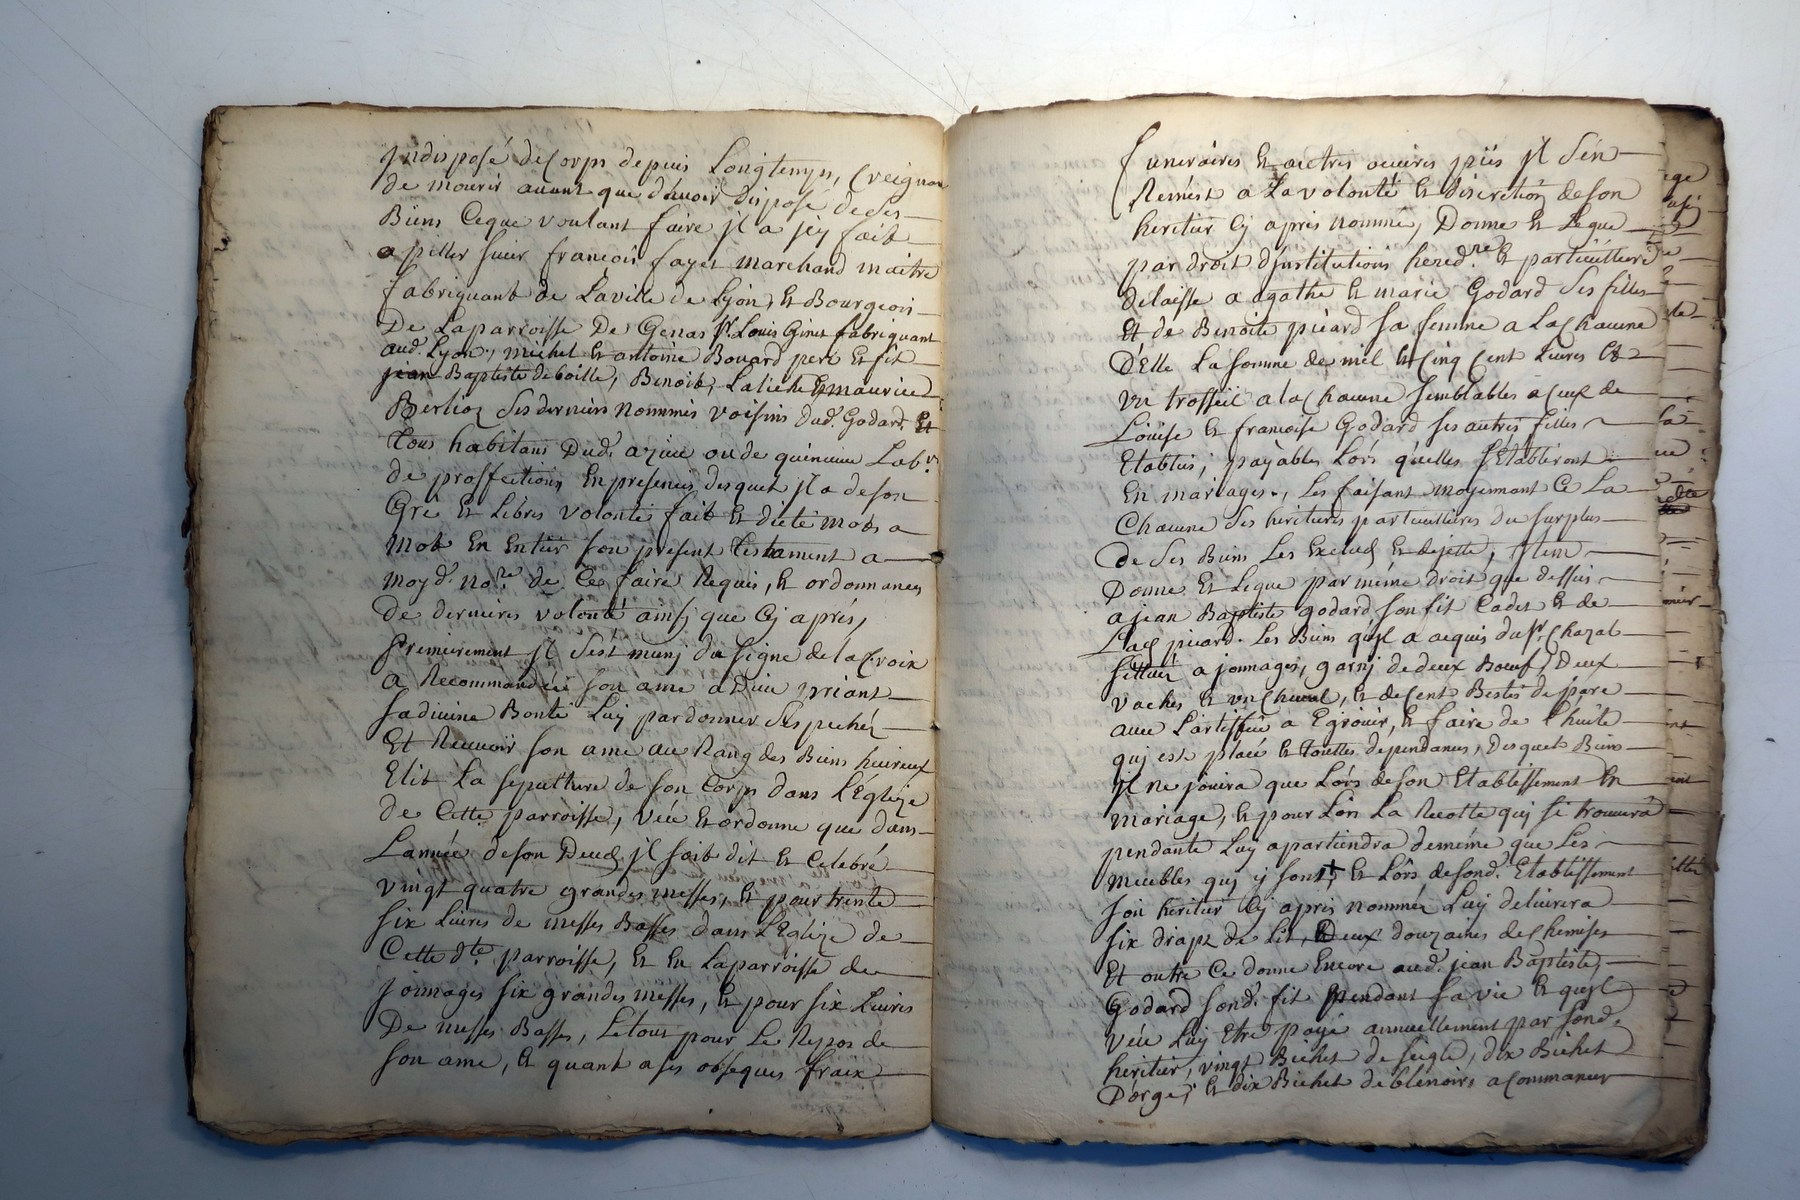 Indisposé de Corps depuis Longtemps, Creignan
de mourir avant que d'avoir disposé de Ses
Biens Ceque voulant faire Jl a jcy fait
apeller sieur francois fayet marchand maitre
fabriquant de Laville de Lyon, et Bourgeois
De Laparroisse De Genas Sr. Louis Ginet fabriquant
aud. Lyon, michel et antoine Bouard pere et fils
jean Baptiste deboille, Benoit, et maurice
Berlioz Ses derniers nommés voisins dud. Godard Et
tous habitans Dud. azieu ou de quincieu Labrs
de proffections En presences desquels Jl a de son
Gré Et Libres volonté fait Et dicté mots a
mot En Entier son present testament a
moyd. nore. de Ce faire Requis, et ordonnances
de dernieres volonté ainsj que Cj aprés,
Premierement Jl S'est munj du signe de la Croix
a Recommandée son ame a Dieu priant
sa divine Bonté Luy pardonner Ses pechéz
Et Recevoir son ame au Rang des Biens heureux
Elit La sepulture de son Corps dans L'Eglize
de Cette parroisse, veüt Et ordonne que dans
Lannée de son Deced Jl soit dit Et Celebré
vingt quatre grandes messes, et pour trente
six Livres de messes Basses dans L'Eglize de
Cette dte. parroisse, Et En Laparroisse de
jonnages six grandes messes, et pour six Livres
De messes Basses, Letout pour Le Repos de
son ame, et quant a ses obseques fraix
funeraires Et autres oeuvres piës Jl S'en
Remést a La volonté Et discretion de son
heritier Cj aprés nommé, Donne Et Legue
par droit d'jnstitutions heredre. Et particuilliere
delaisse a agathe Et marie Godard Ses filles
Et de Benoite picard sa femme a La Chacune
D'Elle La somme de mil Et Cinq Cent Livres Et
un trosseil a la Chacune semblables a Ceux de
Loüise Et francoise Godard ses autres filles
Etablies, payables Lors qu'elles s'Etabliront
En mariages, Les faisant moyennant Ce La
Chacune Ses heritieres particuillieres du surplus
de Ses Biens Les Exclud Et dejette, Jtem
Donne Et Legue par même droit que dessus
a jean Baptiste godard son fils Cadet Et de
Lad picard Les Biens qu'jl a acquis du Sr. Chazal
sittués a jonnages, garnj de deux Boeufs, Deux
vaches Et un Cheval, et de Cent Bestes de pare
avec L'artiffice a Egrouir, Et faire de L'huile
quj est placé Et touttes dependances, desquels Biens
Jl ne jouira que Lors de son Etablissement En
mariage, et pour Lors La Recolte quj se trouvera
pendante Luy apartiendra de même que Les
meubles quj y sont + Et Lors de sond. Etablissement
son heritier Cj aprés nommé Luy delivrera
six draps de Lit, Deux douzaines de Chemises
Et outre Ce donne Encore aud. jean Baptiste
Godard sond. fils Pendant sa vie Et qu'jl
veüt Luy Etre payé annuellement par sond.
heritier, vingt Bichet de seigle, dix Bichet
D'orge, Et dix Bichet de blé noirs a Commancer